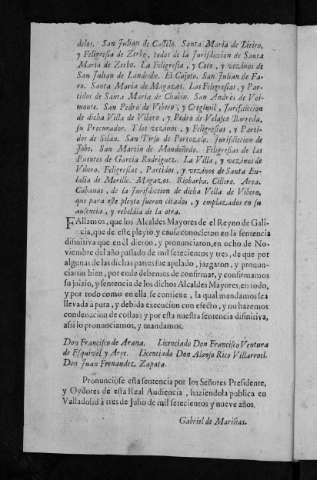 delos, San Julian de Castilo. Santa Maria de Zieiro,
y Feligresia de Zerbo, todos de la Jurisdicion de Santa
Maria de Zerbo. La Feligresia, y Coto, y vezinos de
San Julian de Landrobe. El Cajoto. San Julian de Fa-
ro. Santa Maria de Magazas. Las Feligresias, y Par-
tidos de Santa Maria de Chavin. San Andrès de Voi-
monte. San Pedro de Vibero, y Gregimil, Jurisdicion
de dicha Villa de Vibero, y Pedro de Velasco Bureda,
su Procurador. Y los vezinos, y Feligresias, y Parti-
dos de Silàn. San Tirso de Portozelo. Jurisdicion de
Jobe. San Martin de Mondoñedo. Feligresias de las
Puentes de Garcia Rodriguez. La Villa, y vezinos de
Vibero. Feligresias, Partidos, y vezinos de Santa Eu-
lalia de Merille. Magazos. Riobarba. Cillero. Area.
Cabanas, de la Jurisdicion de dicha Villa de Vibero,
que para este pleyto fueron citados, y emplazados en su
ausencia, y rebeldia de la otra.
FAllamos, que los Alcaldes Mayores de el Reyno de Gali-
cia, que de este pleyto, y causa conocieron en la sentencia
difinitiva que en el dieron, y pronunciaron, en ocho de No-
viembre del año passado de mil setecientos y tres, de que por
algunas de las dichas partes fue apelado, juzgaron, y pronun-
ciaron bien, por ende debemos de confirmar, y confirmamos
su juizio, y sentencia de los dichos Alcaldes Mayores, en todo,
y por todo como en ella se contiene, la qual mandamos sea
llevada à pura, y debida execucion con efecto, y no hazemos
condenacion de costas; y por esta nuestra sentencia difinitiva,
assi lo pronunciamos, y mandamos.
Don Francisco de Arana. Licenciado Don Francisco Ventura
de Esquivel y Arze. Licenciado Don Alonso Rico Villarroel.
Don Juan Fernandez Zapata.
Pronunciose esta sentencia por los Señores Presidente,
y Oydores de esta Real Audiencia, haziendola publica en
Valladolid à tres de Julio de mil setecientos y nueve años.
Gabriel de Mariñas.